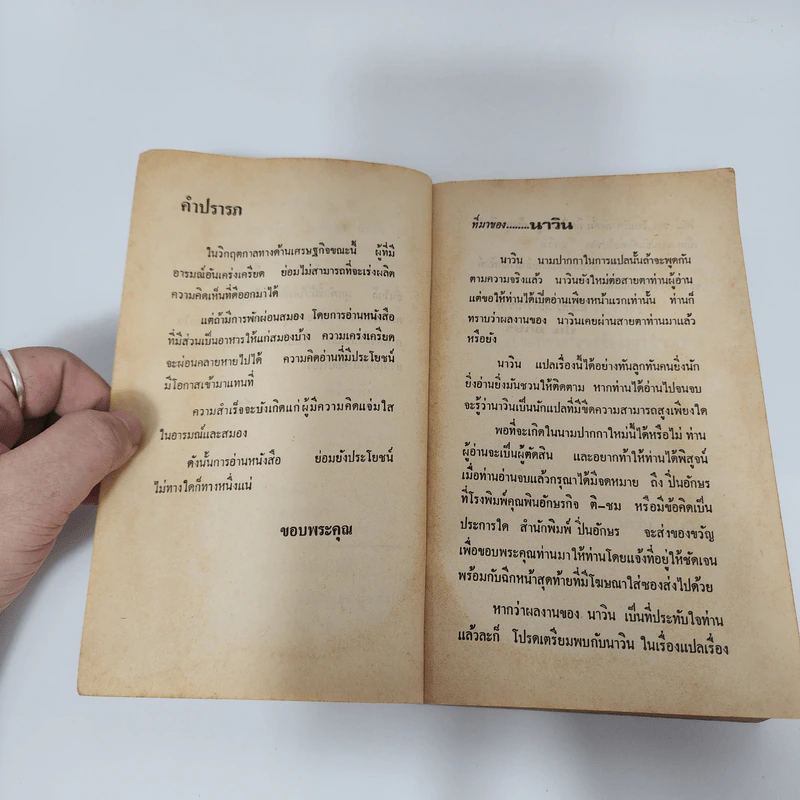 คำปรารภ
ในวิกฤตกาลทางด้านเศรษฐกิจขณะนี้ ผู้ที่มี
อารมณ์อันเคร่งเครียด ย่อมไม่สามารถที่จะเร่งผลิต
ความคิดเห็นที่ดีออกมาได้
แต่ถ้ามีการพักผ่อนสมอง โดยการอ่านหนังสือ
ที่มีส่วนเป็นอาหารให้แก่สมองบ้าง ความเคร่งเครียด
จะผ่อนคลายหายไปได้ ความคิดอ่านที่มีประโยชน์
มีโอกาสเข้ามาแทนที่
ความสำเร็จจะบังเกิดแก่ ผู้มีความคิดแจ่มใส
ในอารมณ์และสมอง
ดังนั้นการอ่านหนังสือ ย่อมยังประโยชน์
ไม่ทางใดก็ทางหนึ่งแน่
ขอบพระคุณ
ที่มาของ........นาวิน
นาวิน นามปากกาในการแปลนั้นถ้าจะพูดกัน
ตามความจริงแล้ว นาวินยังใหม่ต่อสายตาท่านผู้อ่าน
แต่ขอให้ท่านได้เปิดอ่านเพียงหน้าแรกเท่านั้น ท่านก็
ทราบว่าผลงานของ นาวินเคยผ่านสายตาท่านมาแล้ว
หรือยัง
นาวิน แปลเรื่องนี้ได้อย่างทันลูกทันคนยิ่งนัก
ยิ่งอ่านยิ่งมันชวนให้ติดตาม หากท่านได้อ่านไปจนจบ
จะรู้ว่านาวินเป็นนักแปลที่มีขีดความสามารถสูงเพียงใด
พอที่จะเกิดในนามปากกาใหม่นี้ได้หรือไม่ ท่าน
ผู้อ่านจะเป็นผู้ตัดสิน และอยากท้าให้ท่านได้พิสูจน์
เมื่อท่านอ่านจบแล้วกรุณาได้มีจดหมาย ถึง ปิ่นอักษร
ที่โรงพิมพ์คุณพินอักษรกิจ ติ—ชม หรือมีข้อคิดเป็น
ประการใด สำนักพิมพ์ ปิ่นอักษร จะส่งของขวัญ
เพื่อขอบพระคุณท่านมาให้ท่านโดยแจ้งที่อยู่ให้ชัดเจน
พร้อมกับฉีกหน้าสุดท้ายที่มีโฆษณาใส่ซองส่งไปด้วย
หากว่าผลงานของ นาวิน เป็นที่ประทับใจท่าน
แล้วละก็ โปรดเตรียมพบกับนาวิน ในเรื่องแปลเรื่อง